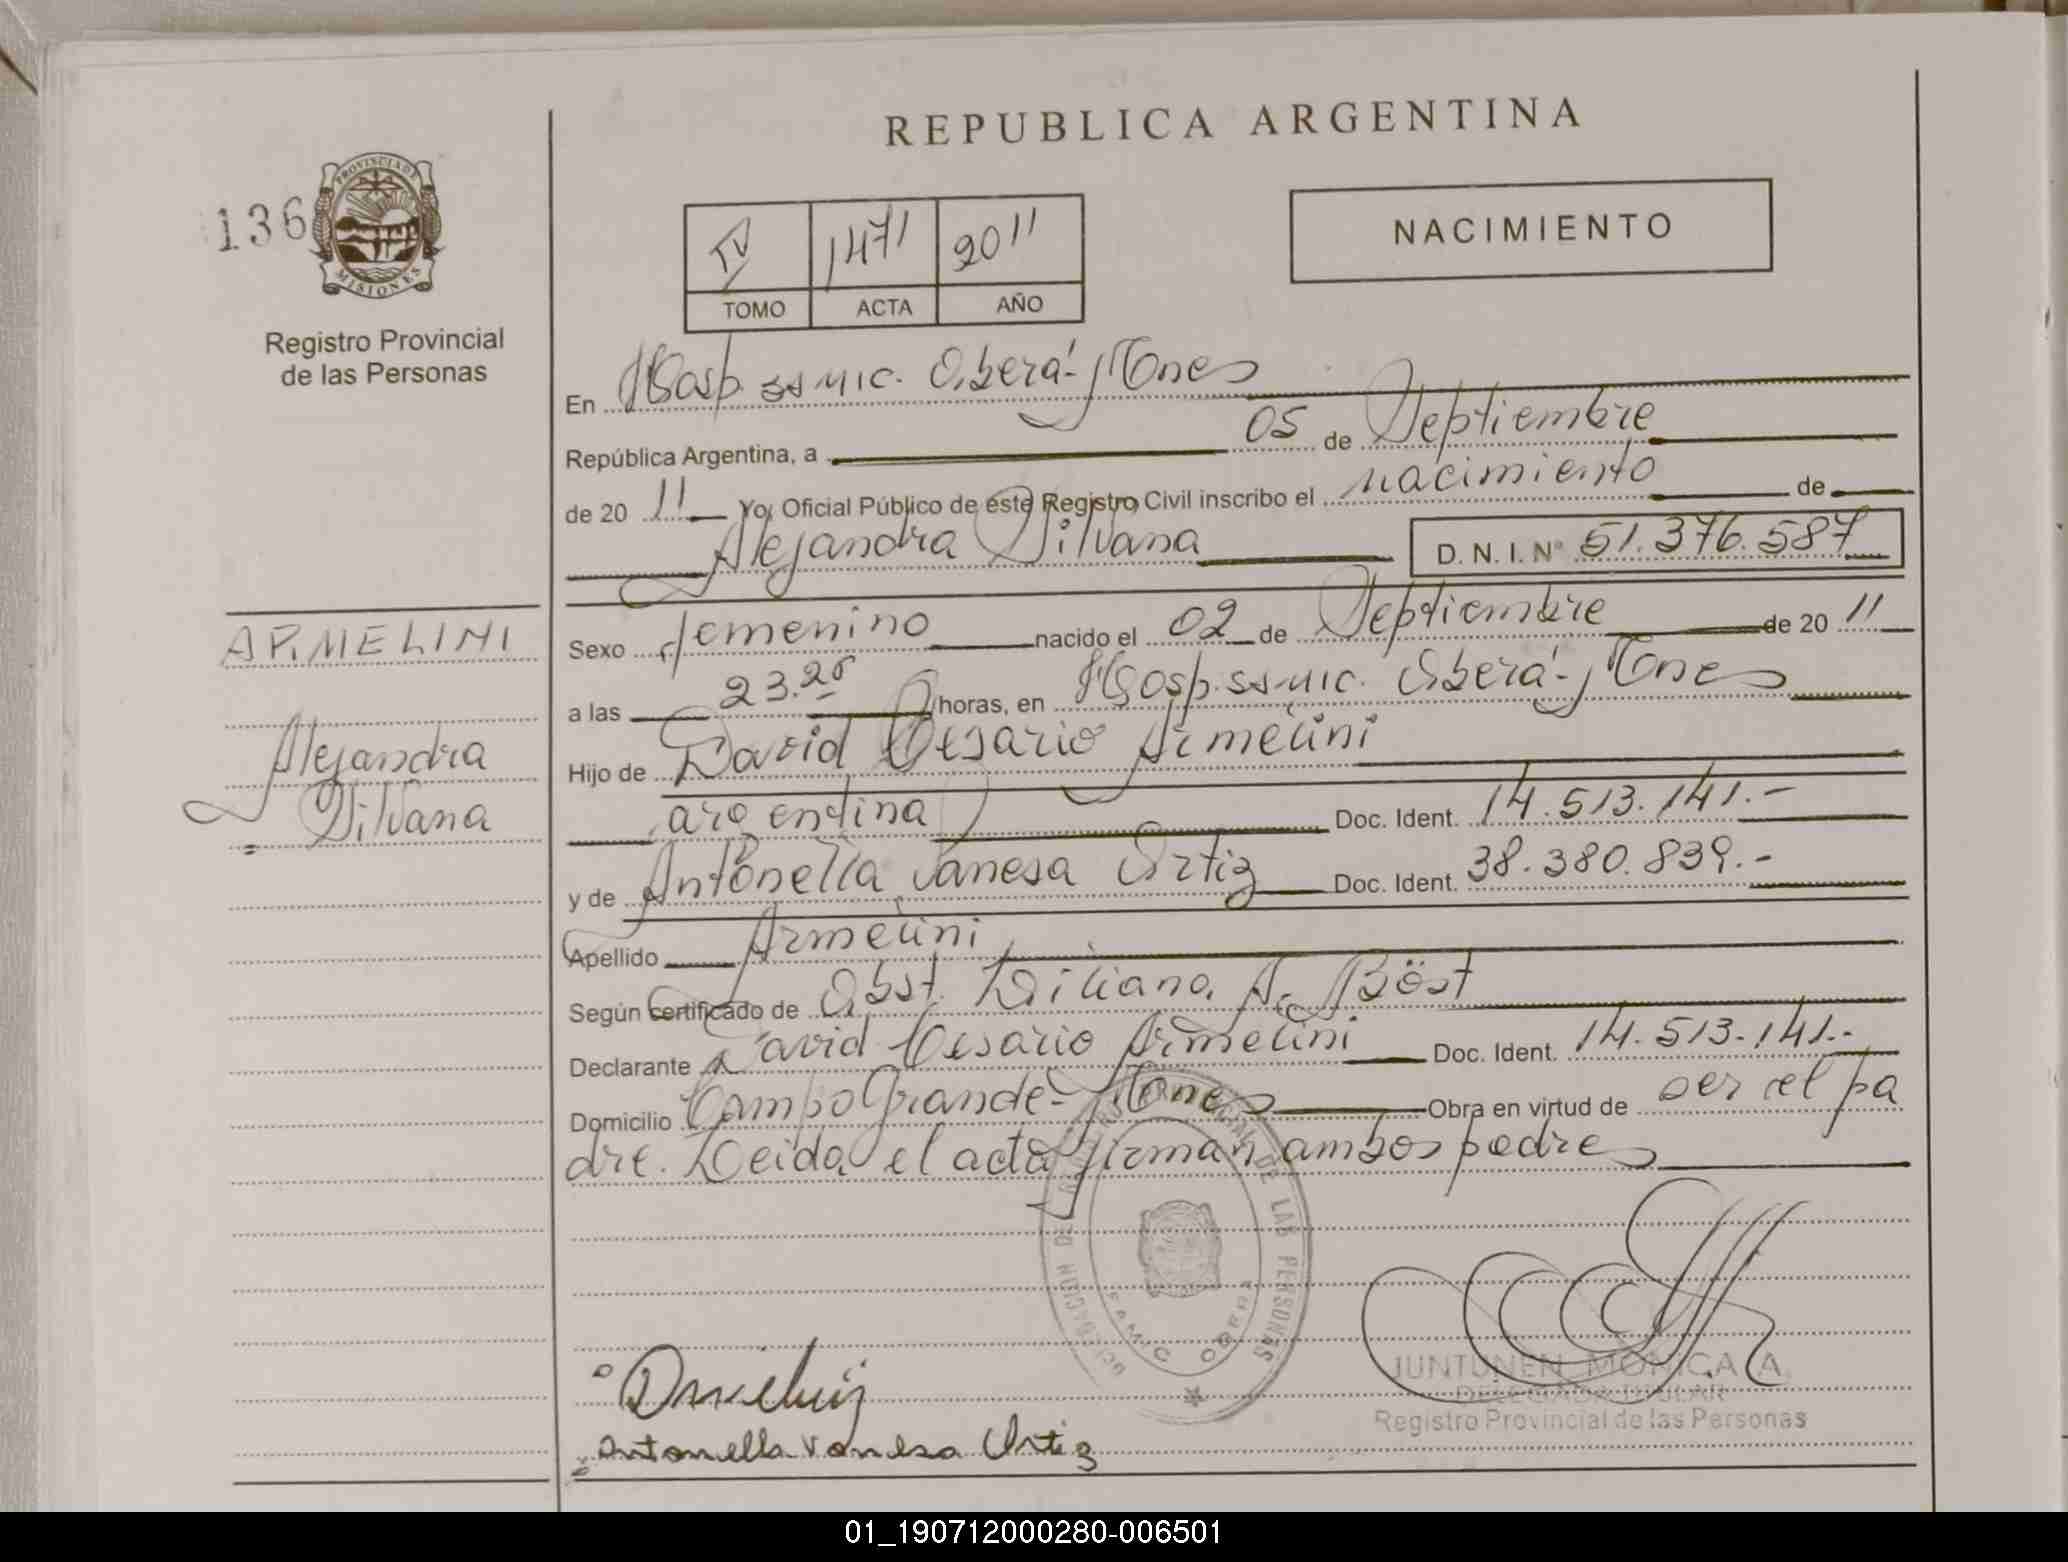 REPUBLICA ARGENTINA
136
PROVINCIA DE
MISIONES
Registro Provincial
de las Personas
IV 1471 2011
TOMO ACTA AÑO
NACIMIENTO
En Hosp. ssmic. Oberá - Mones
República Argentina, a 05 de Septiembre
de 20 11 Yo, Oficial Público de este Registro Civil inscribo el nacimiento de
Alejandra Silvana D. N. I. Nº 51.376.587
ARMELINI
Alejandra
Silvana
Sexo femenino nacido el 02 de Septiembre de 20 11
a las 23.20 horas, en Hosp. ssmic. Oberá - Mones
Hijo de David Cesario Armelini
argentina Doc. Ident. 14.513.141.-
y de Antonella Vanesa Ortiz Doc. Ident. 38.380.839.-
Apellido Armelini
Según certificado de Obst. Liliana A. Böst
Declarante David Cesario Armelini Doc. Ident. 14.513.141.-
Domicilio Campo Grande - Mones Obra en virtud de ser el pa
dre. Leida el acta firman ambos padres
DE LAS PERSONAS
SAMIC OBERA
JUNTUNEN MONICA A.
DELEGADA TITULAR
Registro Provincial de las Personas
Antonella Vanesa Ortiz
01_190712000280-006501